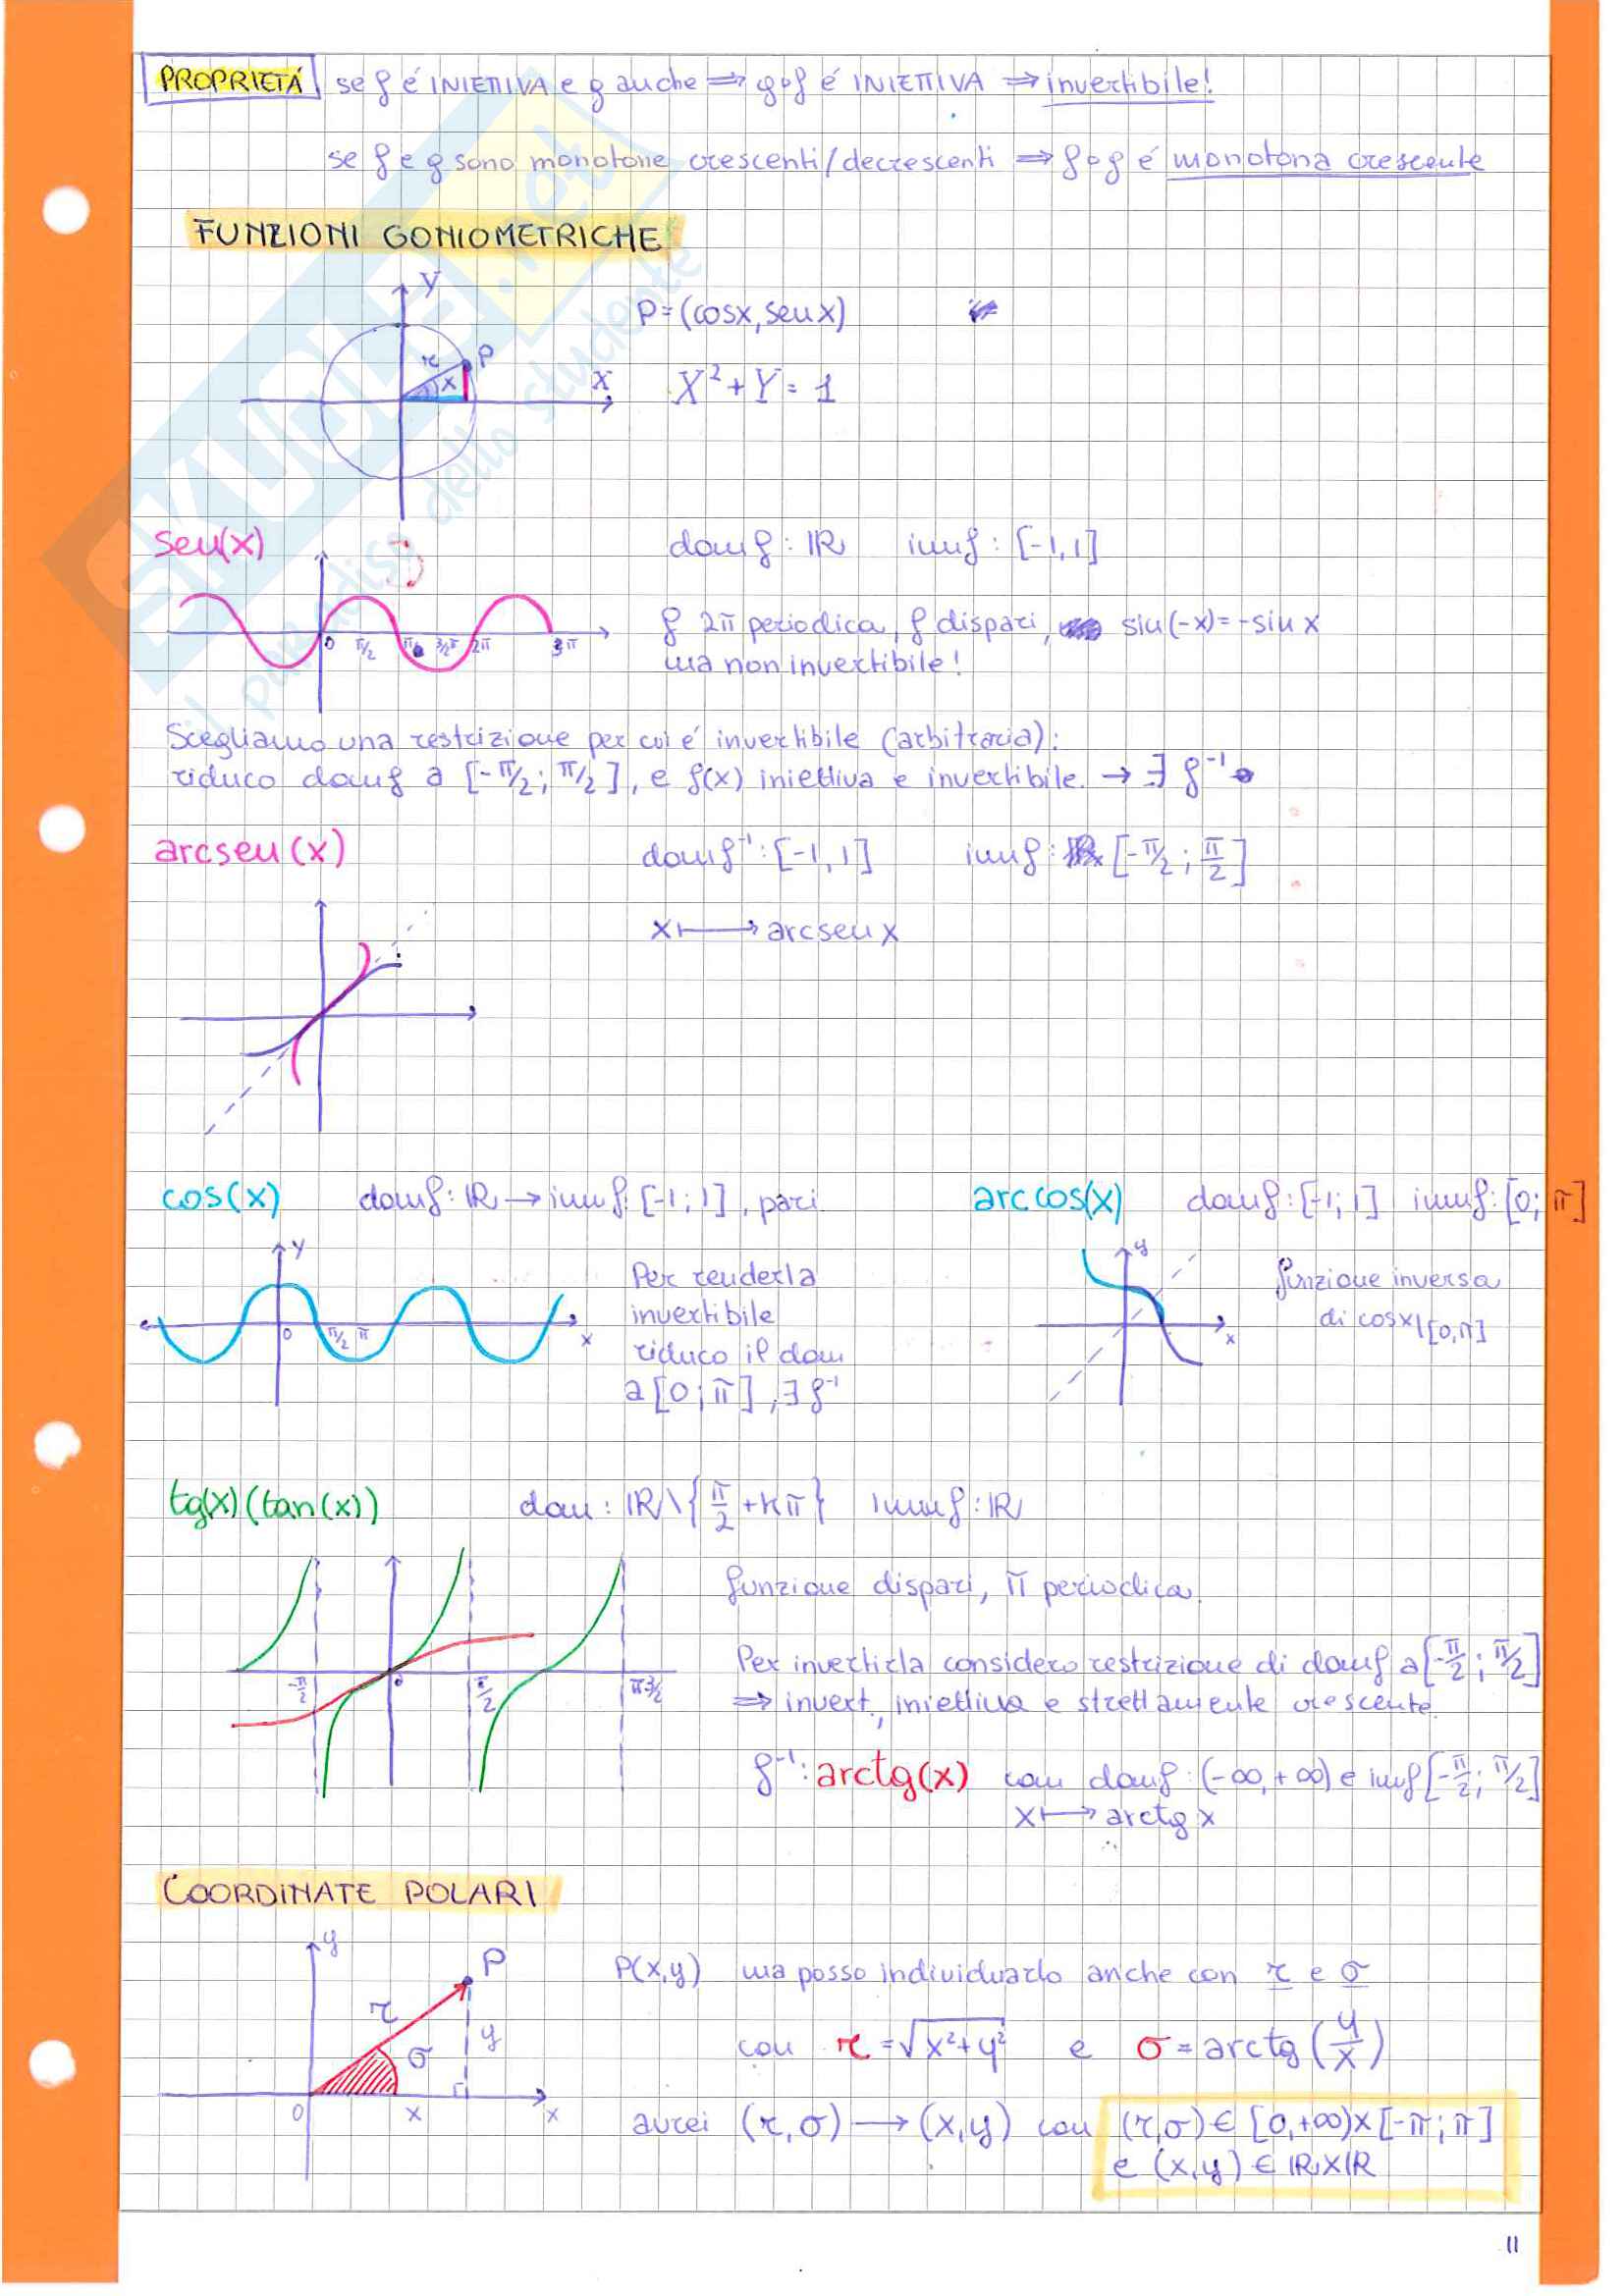 PROPRIETÁ se f é INIETTIVA e g anche ⇒ g∘f é INIETTIVA ⇒ invertibile!
se f e g sono monotone crescenti/decrescenti ⇒ f∘g é monotona crescente
FUNZIONI GONIOMETRICHE
Y
P=(cosx, senx)
r P
x X
X²+Y=1
sen(x) domf: ℝ immf: [-1,1]
0 π/2 π 3/2π 2π 3π
f 2π periodica, f dispari, sin(-x)=-sinx
ma non invertibile!
Scegliamo una restrizione per cui é invertibile (arbitraria):
riduco domf a [-π/2; π/2], e f(x) iniettiva e invertibile. → ∃ f⁻¹
arcsen(x) domf⁻¹: [-1,1] immf: [-π/2; π/2]
x ↦ arcsenx
cos(x) domf: ℝ → immf: [-1;1], pari
arccos(x) domf: [-1;1] immf: [0; π]
y
0 π/2 π x
Per renderla
invertibile
riduco il dom
a [0;π], ∃f⁻¹
y
x
funzione inversa
di cosx|[0,π]
tg(x)(tan(x)) dom: ℝ\{π/2+kπ} immf: ℝ
-π/2 0 π/2 π3/2
funzione dispari, π periodica
Per invertirla considero restrizione di domf a [-π/2; π/2]
⇒ invert., iniettiva e strettamente crescente
f⁻¹: arctg(x) con domf: (-∞,+∞) e immf [-π/2; π/2]
x ↦ arctgx
COORDINATE POLARI
y
P
r
σ y
0 x x
P(x,y) ma posso individuarlo anche con r e σ
con r=√x²+y² e σ=arctg(y/x)
avrei (r,σ) → (x,y) con (r,σ) ∈ [0,+∞)×[-π;π]
e (x,y) ∈ ℝ×ℝ
11
SKUOLA.net
il paradiso dello studente